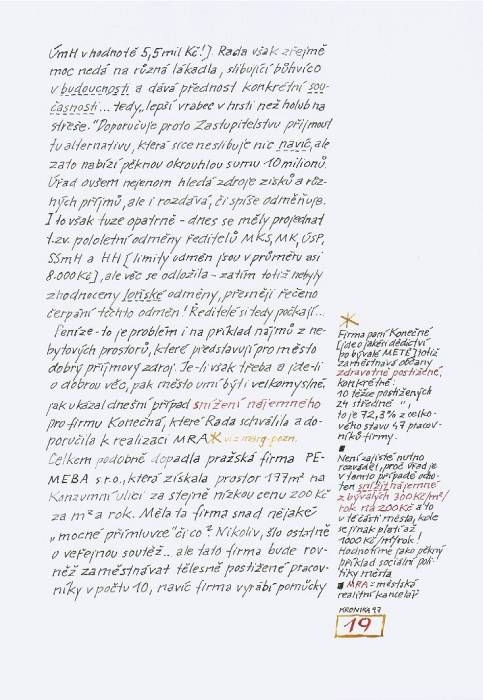 ÚmH v hodnotě 5,5 mil Kč!]. Rada však zřejmě
moc nedá na různá lákadla, slibující bůhvíco
v budoucnosti a dává přednost konkrétní sou-
časnosti... tedy „lepší vrabec v hrsti než holub na
střeše." Doporučuje proto Zastupitelstvu přijmout
tu alternativu, která sice neslibuje nic navíc, ale
zato nabízí pěknou okrouhlou sumu 10 milionů.
Úřad ovšem nejenom hledá zdroje zisků a růz-
ných příjmů, ale i rozdává, či spíše odměňuje.
I to však tuze opatrně - dnes se měly projednat
t.zv. pololetní odměny ředitelů MKS, MK, ÚSP,
SSmH a HH [limity odměn jsou v průměru asi
8.000 Kč], ale věc se odložila - zatím totiž nebyly
zhodnoceny loňské odměny, přesněji řečeno
čerpání těchto odměn! Ředitelé si tedy počkají...
Peníze - to je problém i na příklad nájmů z ne-
bytových prostorů, které představují pro město
dobrý příjmový zdroj. Je-li však třeba a jde-li
o dobrou věc, pak město umí být i velkomyslné,
jak ukázal dnešní případ snížení nájemného
pro firmu Konečná, které Rada schválila a do-
poručila k realizaci MRA * viz marg. pozn.
Celkem podobně dopadla pražská firma PE-
MEBA s r.o., která získala prostor 177 m² na
Konzumní ulici za stejně nízkou cenu 200 Kč
za m² a rok. Měla ta firma snad nějaké
„mocné přímluvce" či co? Nikoliv, šlo ostatně
o veřejnou soutěž... ale tato firma bude rov-
něž zaměstnávat tělesně postižené pracov-
níky v počtu 10, navíc firma vyrábí pomůcky
*
Firma paní Konečné
[jde o jakési dědictví
po bývalé METĚ] totiž
zaměstnává občany
zdravotně postižené,
konkrétně:
10 těžce postižených
24 středně "
to je 72,3% z celko-
vého stavu 47 pracov-
níků firmy.
Není zajisté nutno
rozvádět, proč úřad je
v tomto případě ocho-
ten snížit nájemné
z bývalých 300 Kč/m²/
rok na 200 Kč a to
v té části města, kde
se jinak platí až
1000 Kč/m²/rok!
Hodnotíme jako pěkný
příklad sociální poli-
tiky města
MRA = městská
realitní kancelář
KRONIKA 97
19